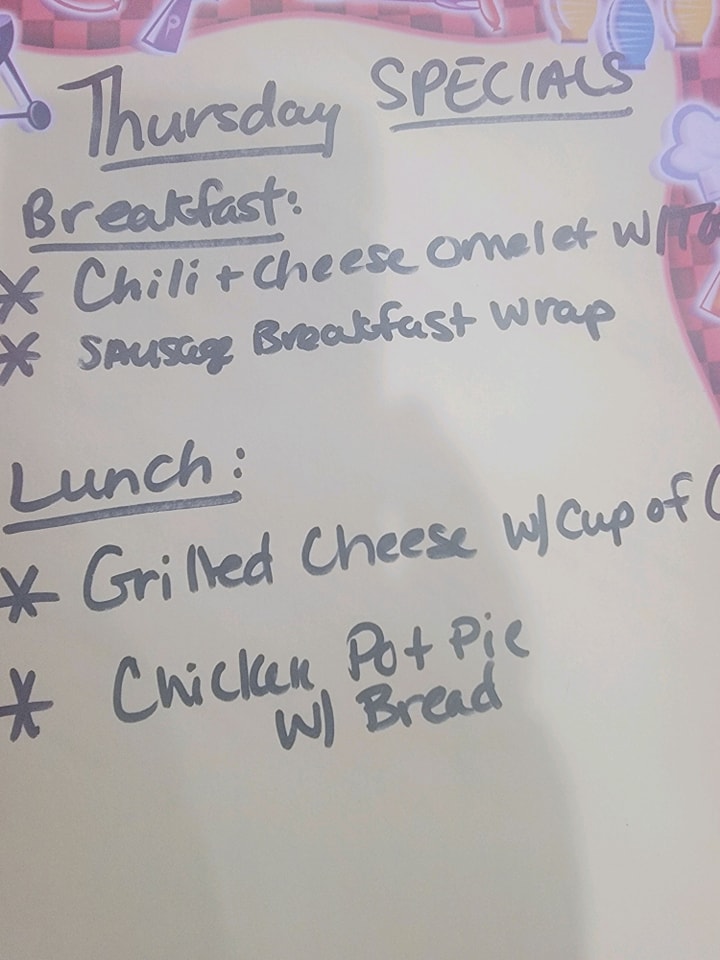 Thursday SPECIALS
Breakfast:
* Chili + Cheese omelet w/
* Sausage Breakfast Wrap
Lunch:
* Grilled Cheese w/ Cup of
* Chicken Pot Pie
w/ Bread